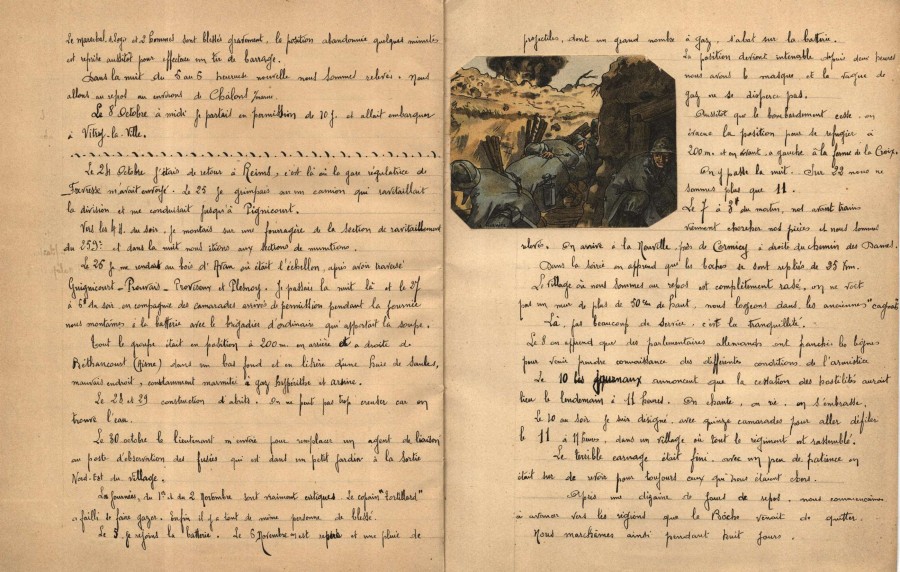 Le maréchal des logis et 2 hommes sont blessés gravement, la position abandonnée quelques minutes
et reprise aussitôt pour effectuer un tir de barrage.
Dans la nuit du 5 au 6 heureuse nouvelle nous sommes relevés. Nous
allons au repos au environs de Châlons s/marne
Le 8 Octobre à midi je partait en permission de 20 J. et allait embarquer
à Vitry-la-Ville.
Le 24 Octobre j'étais de retour à Reims, c'est là où la gare régulatrice de
Favresse m'avait envoyé. Le 25 je grimpais sur un camion qui ravitaillait
la division et me conduisait jusqu'à Pignicourt.
Vers les 4 H. du soir, je montais sur une fouragère de la section de ravitaillement
du 259e et dans la nuit nous étions aux sections de munitions.
Le 26 je me rendais au bois d'Avan où était l'échelon, après avoir traversé
Guignicourt - Prouvais - Proviseux et Plesnoy. Je passais la nuit là et le 27
à 6h du soir en compagnie des camarades arrivés de permission pendant la journée
nous montâmes à la batterie avec le brigadier d'ordinaire qui apportait la soupe.
Tout le groupe était en position à 200m. en arrière et à droite de
Réthancourt (Aisne) dans un bas fond et en lisière d'une haie de saules,
mauvais endroit, constamment marmité à gaz hypérithe et arsine.
Le 28 et 29 construction d'abris. On ne peut pas trop creuser car on
trouve l'eau.
Le 30 octobre le lieutenant m'envoie pour remplacer un agent de liaison
au poste d'observation des fusées qui est dans un petit jardin à la sortie
Nord-Est du village.
La journée, du 1er et du 2 Novembre sont vraiment critiques. Le copain "Tortillard"
a failli se faire gazer. Enfin il y a tout de même personne de blessé.
Le 3 je rejoins la batterie. Le 5 Novembre est repéré et une pluie de
projectiles, dont un grand nombre à gaz, s'abat sur la batterie.
La position devient intenable depuis deux heures
nous avons le masque et la vague de
gaz ne se disperse pas.
Aussitôt que le bombardement cesse, on
évacue la position pour se réfugier à
200 m. et en avant, à gauche à la ferme de la Croix.
On y passe la nuit. Sur 22 nous ne
sommes plus que 11.
Le 7 à 3h du matin, nos avant trains
viennent chercher nos pièces et nous sommes
relevés. On arrive à la Neuville, près de Cormicy à droite du chemin des Dames.
Dans la soirée on apprend que les boches se sont repliés de 25 Km.
Le village où nous sommes au repos est complètement rasé, on ne voit
pas un mur de plus de 50 cm de haut, nous logeons dans les anciennes "cagnas"
Là, pas beaucoup de service, c'est la tranquillité.
Le 8 on apprend que des parlementaires allemands ont franchi les lignes
pour venir prendre connaissance des différentes conditions de l'armistice
Le 10 les journaux annoncent que la cessation des hostilités aurait
lieu le lendemain à 11 heures. On chante, on rie, on s'embrasse.
Le 10 au soir je suis désigné, avec quinze camarades pour aller défiler
le 11 à 11 heures, dans un village où tout le régiment est rassemblé.
Le terrible carnage était fini, avec un peu de patience on
était sur de revoir pour toujours ceux qui nous étaient chers.
Après une dizaine de jours de repos, nous commencions
à avancer vers les régions que le Boche venait de quitter.
Nous marchâmes ainsi pendant huit jours.